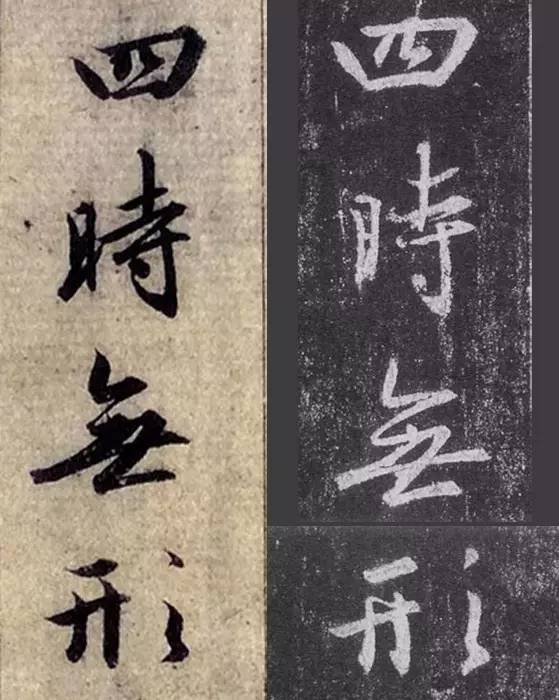 四時無形
四時無形